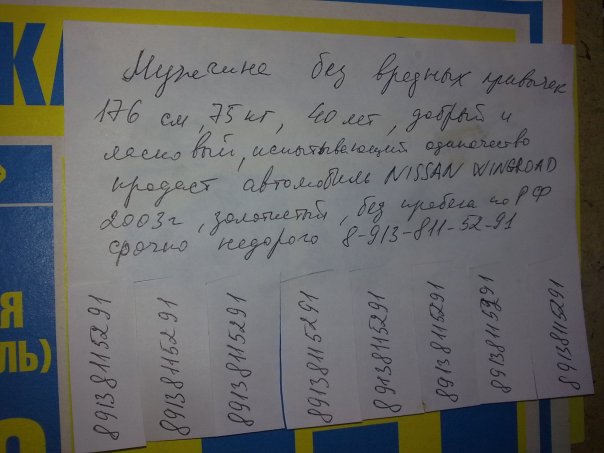 КА
Мужчина без вредных привычек
176 см, 75 кг, 40 лет, добрый и
ласковый, испытывающий одиночество
продаст автомобиль NISSAN WINGROAD
2003г, золотистый, без пробега по РФ
срочно недорого 8-913-811-52-91
89138115291
89138115291
89138115291
89138115291
89138115291
89138115291
89138115291
89138115291
Я
ЛЬ)